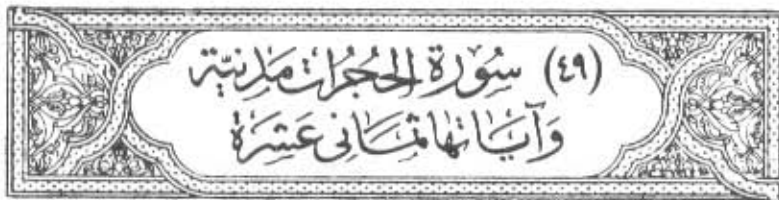 (٤٩) سُورَةُ الحُجُرَاتِ مَدَنِيَّة
وَآيَاتُهَا ثَمَانِي عَشِرَة